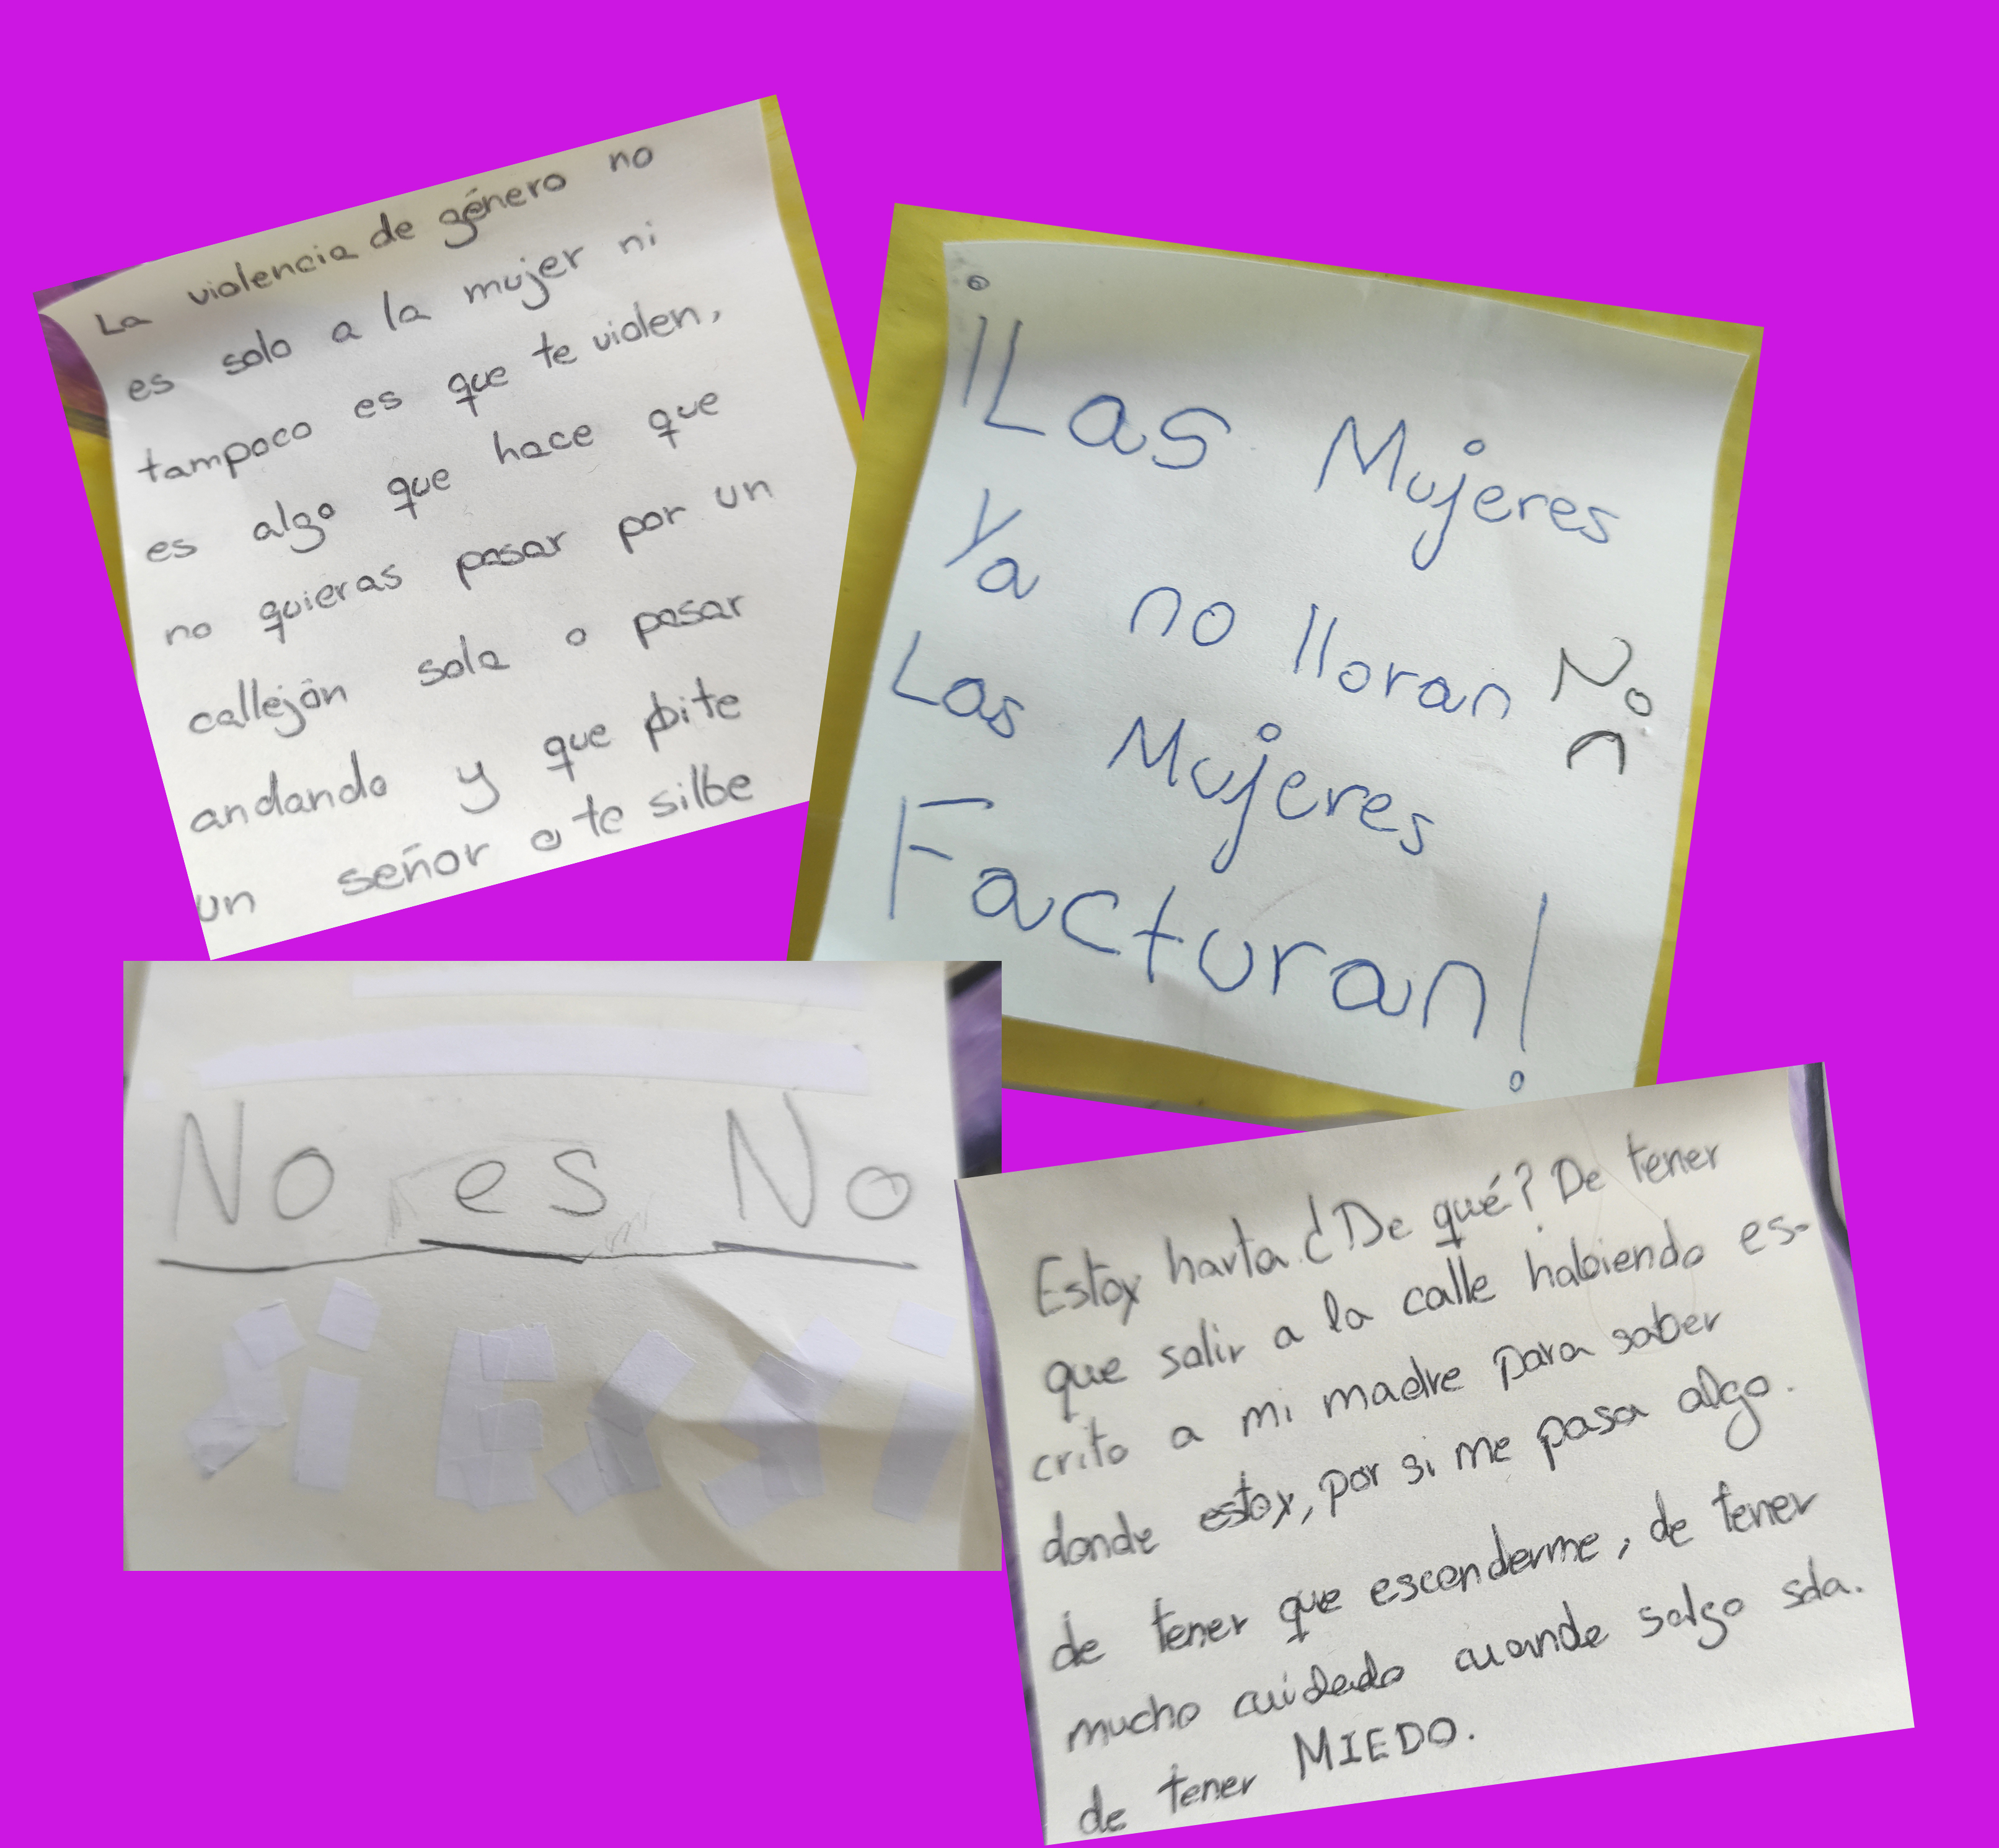 La violencia de género no
es solo a la mujer ni
tampoco es que te violen,
es algo que hace que
no quieras pasar por un
callejón sola o pasar
andando y que pite
un señor o te silbe
¡Las Mujeres
Ya no lloran No
Las Mujeres
Facturan!
No es No
Si ES SI
Estoy harta ¿De qué? De tener
que salir a la calle habiendo es-
crito a mi madre para saber
donde estoy, por si me pasa algo.
de tener que esconderme, de tener
mucho cuidado cuando salgo sola.
de tener MIEDO.